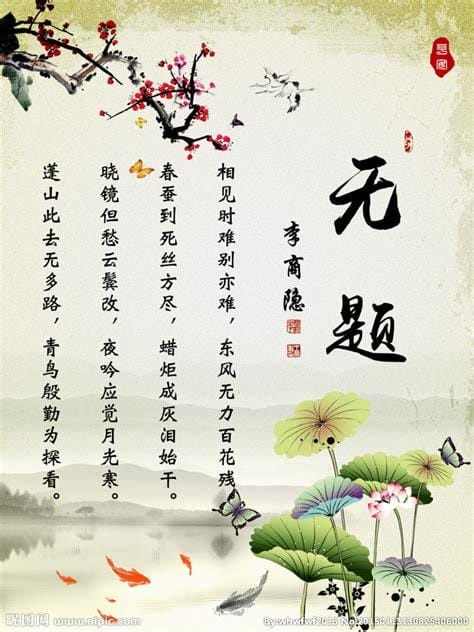 无题
李商隐
相见时难别亦难，东风无力百花残。
春蚕到死丝方尽，蜡炬成灰泪始干。
晓镜但愁云鬓改，夜吟应觉月光寒。
蓬山此去无多路，青鸟殷勤为探看。
昵图网
www.nipic.com
By:whwfwf2013 No:20150113130825406000